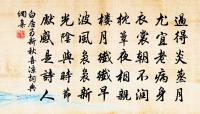 過得炎蒸月
尤宜老病身
衣裳朝不潤
枕簟夜相親
樓月纖纖早
波風裊裊新
光陰與時節
感是詩人
白居易新秋喜涼詞典
網集